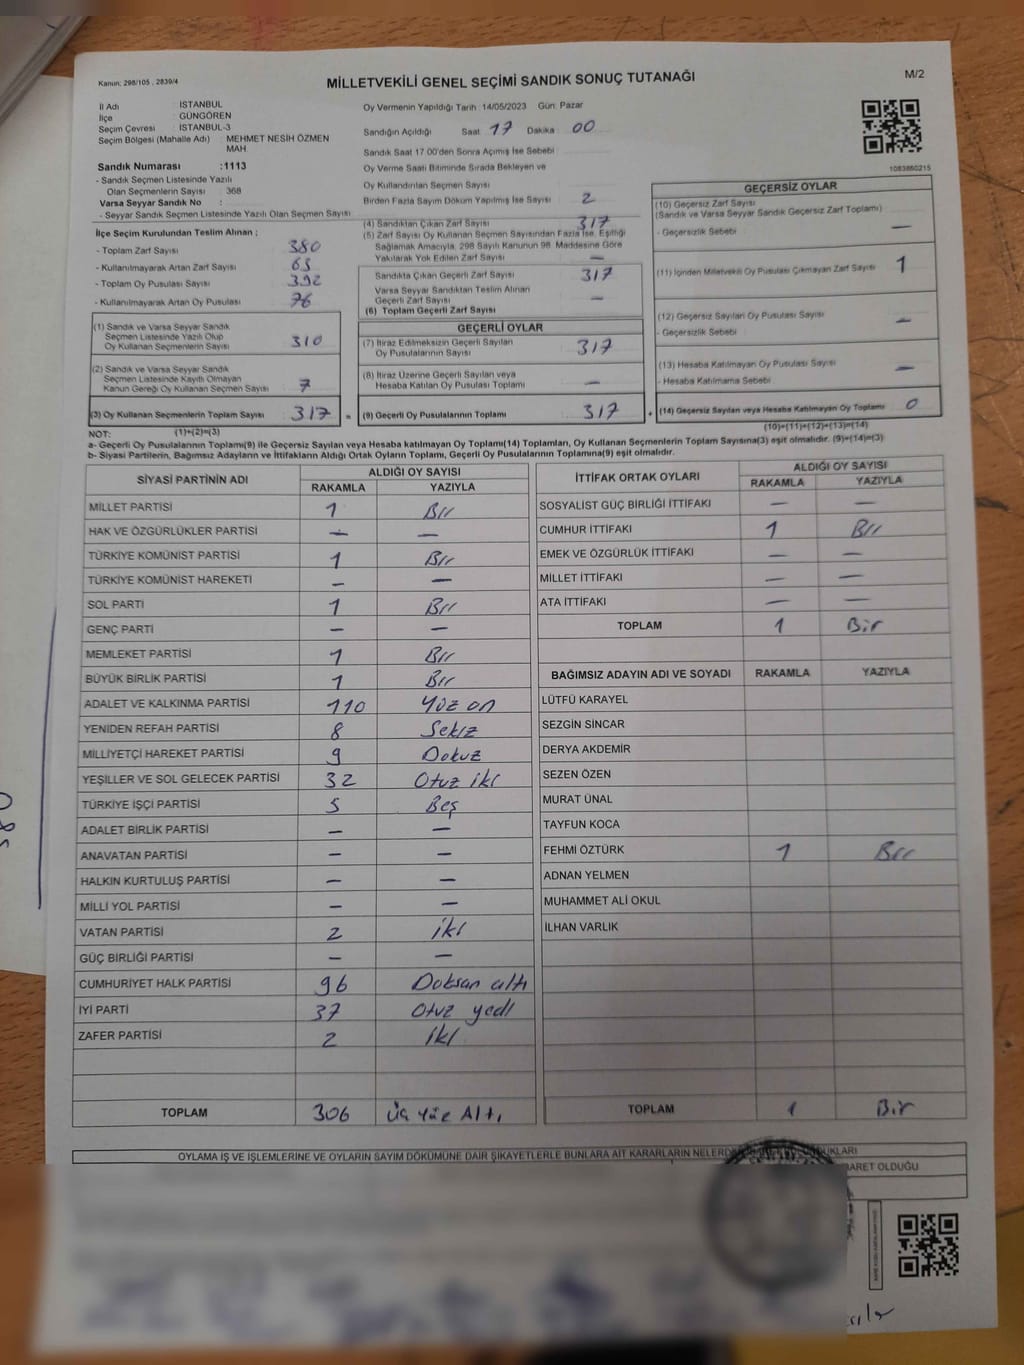 Kanun: 298/105 , 2839/4
MİLLETVEKİLİ GENEL SEÇİMİ SANDIK SONUÇ TUTANAĞI
M/2
İl Adı : İSTANBUL
İlçe : GÜNGÖREN
Seçim Çevresi : İSTANBUL-3
Seçim Bölgesi (Mahalle Adı) : MEHMET NESİH ÖZMEN
MAH.
Sandık Numarası :1113
- Sandık Seçmen Listesinde Yazılı
Olan Seçmenlerin Sayısı : 368
Varsa Seyyar Sandık No :
- Seyyar Sandık Seçmen Listesinde Yazılı Olan Seçmen Sayısı
İlçe Seçim Kurulundan Teslim Alınan ;
- Toplam Zarf Sayısı 380
- Kullanılmayarak Artan Zarf Sayısı 63
- Toplam Oy Pusulası Sayısı 392
- Kullanılmayarak Artan Oy Pusulası 76
(1) Sandık ve Varsa Seyyar Sandık
Seçmen Listesinde Yazılı Olup
Oy Kullanan Seçmenlerin Sayısı 310
(2) Sandık ve Varsa Seyyar Sandık
Seçmen Listesinde Kayıtlı Olmayan
Kanun Gereği Oy Kullanan Seçmen Sayısı 7
(3) Oy Kullanan Seçmenlerin Toplam Sayısı 317 =
Oy Vermenin Yapıldığı Tarih : 14/05/2023 Gün: Pazar
Sandığın Açıldığı Saat 17 Dakika 00
Sandık Saat 17.00'den Sonra Açımış İse Sebebi
Oy Verme Saati Bitiminde Sırada Bekleyen ve
Oy Kullandırılan Seçmen Sayısı
Birden Fazla Sayım Döküm Yapılmış İse Sayısı 2
(4) Sandıktan Çıkan Zarf Sayısı 317
(5) Zarf Sayısı Oy Kullanan Seçmen Sayısından Fazla İse, Eşitliği
Sağlamak Amacıyla, 298 Sayılı Kanunun 98. Maddesine Göre
Yakılarak Yok Edilen Zarf Sayısı —
Sandıkta Çıkan Geçerli Zarf Sayısı 317
Varsa Seyyar Sandıktan Teslim Alınan
Geçerli Zarf Sayısı —
(6) Toplam Geçerli Zarf Sayısı
GEÇERLİ OYLAR
(7) İtiraz Edilmeksizin Geçerli Sayılan
Oy Pusulalarının Sayısı 317
(8) İtiraz Üzerine Geçerli Sayılan veya
Hesaba Katılan Oy Pusulası Toplamı —
(9) Geçerli Oy Pusulalarının Toplamı 317 +
1083860215
GEÇERSİZ OYLAR
(10) Geçersiz Zarf Sayısı
(Sandık ve Varsa Seyyar Sandık Geçersiz Zarf Toplamı) —
- Geçersizlik Sebebi
(11) İçinden Milletvekili Oy Pusulası Çıkmayan Zarf Sayısı 1
(12) Geçersiz Sayılan Oy Pusulası Sayısı —
- Geçersizlik Sebebi
(13) Hesaba Katılmayan Oy Pusulası Sayısı —
- Hesaba Katılmama Sebebi
(14) Geçersiz Sayılan veya Hesaba Katılmayan Oy Toplamı 0
NOT: (1)+(2)=(3) (10)+(11)+(12)+(13)=(14)
a- Geçerli Oy Pusulalarının Toplamı(9) ile Geçersiz Sayılan veya Hesaba katılmayan Oy Toplamı(14) Toplamları, Oy Kullanan Seçmenlerin Toplam Sayısına(3) eşit olmalıdır. (9)+(14)=(3)
b- Siyasi Partilerin, Bağımsız Adayların ve İttifakların Aldığı Ortak Oyların Toplamı, Geçerli Oy Pusulalarının Toplamına(9) eşit olmalıdır.
SİYASİ PARTİNİN ADI ALDIĞI OY SAYISI
RAKAMLA YAZIYLA
MİLLET PARTİSİ 1 Bir
HAK VE ÖZGÜRLÜKLER PARTİSİ — —
TÜRKİYE KOMÜNİST PARTİSİ 1 Bir
TÜRKİYE KOMÜNİST HAREKETİ — —
SOL PARTİ 1 Bir
GENÇ PARTİ — —
MEMLEKET PARTİSİ 1 Bir
BÜYÜK BİRLİK PARTİSİ 1 Bir
ADALET VE KALKINMA PARTİSİ 110 Yüz on
YENİDEN REFAH PARTİSİ 8 Sekiz
MİLLİYETÇİ HAREKET PARTİSİ 9 Dokuz
YEŞİLLER VE SOL GELECEK PARTİSİ 32 Otuz iki
TÜRKİYE İŞÇİ PARTİSİ 5 Beş
ADALET BİRLİK PARTİSİ — —
ANAVATAN PARTİSİ — —
HALKIN KURTULUŞ PARTİSİ — —
MİLLİ YOL PARTİSİ — —
VATAN PARTİSİ 2 iki
GÜÇ BİRLİĞİ PARTİSİ — —
CUMHURİYET HALK PARTİSİ 96 Doksan altı
İYİ PARTİ 37 Otuz yedi
ZAFER PARTİSİ 2 iki
TOPLAM 306 Üç Yüz Altı
İTTİFAK ORTAK OYLARI ALDIĞI OY SAYISI
RAKAMLA YAZIYLA
SOSYALİST GÜÇ BİRLİĞİ İTTİFAKI — —
CUMHUR İTTİFAKI 1 Bir
EMEK VE ÖZGÜRLÜK İTTİFAKI — —
MİLLET İTTİFAKI — —
ATA İTTİFAKI — —
TOPLAM 1 Bir
BAĞIMSIZ ADAYIN ADI VE SOYADI RAKAMLA YAZIYLA
LÜTFÜ KARAYEL
SEZGİN SİNCAR
DERYA AKDEMİR
SEZEN ÖZEN
MURAT ÜNAL
TAYFUN KOCA
FEHMİ ÖZTÜRK 1 Bir
ADNAN YELMEN
MUHAMMET ALİ OKUL
İLHAN VARLIK
TOPLAM 1 Bir
OYLAMA İŞ VE İŞLEMLERİNE VE OYLARIN SAYIM DÖKÜMÜNE DAİR ŞİKAYETLERLE BUNLARA AİT KARARLARIN
OLDUĞU